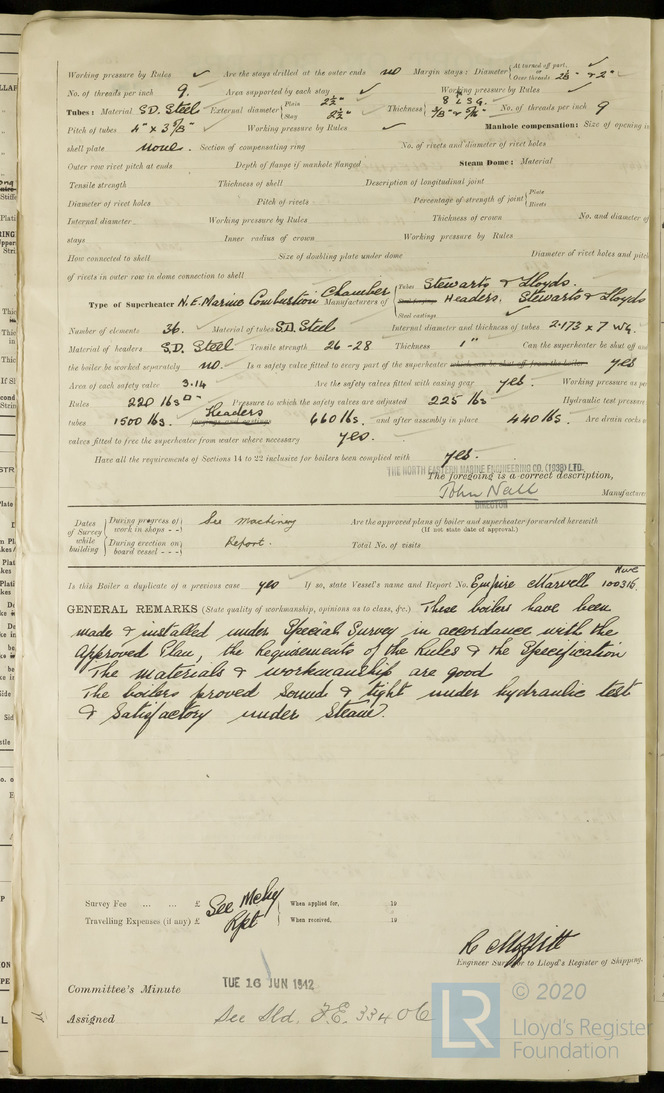 Working pressure by Rules ✓ Are the stays drilled at the outer ends no Margin stays: Diameter { At turned off part, or Over threads 2⅛" & 2" ✓
No. of threads per inch 9. Area supported by each stay ✓ Working pressure by Rules ✓
Tubes: Material S.D. Steel External diameter { Plain 2½" Stay 2½" Thickness { 8 LSG. 5/16" No. of threads per inch 9
Pitch of tubes 4" x 3⅞" Working pressure by Rules ✓ Manhole compensation: Size of opening in
shell plate none. Section of compensating ring No. of rivets and diameter of rivet holes
Outer row rivet pitch at ends Depth of flange if manhole flanged Steam Dome: Material
Tensile strength Thickness of shell Description of longitudinal joint
Diameter of rivet holes Pitch of rivets Percentage of strength of joint { Plate Rivets
Internal diameter Working pressure by Rules Thickness of crown No. and diameter of
stays Inner radius of crown Working pressure by Rules
How connected to shell Size of doubling plate under dome Diameter of rivet holes and pitch
of rivets in outer row in dome connection to shell
Type of Superheater N.E. Marine Combustion Chamber Manufacturers of { Tubes Stewarts & Lloyds. Steel forgings Headers. Stewarts & Lloyds Steel castings
Number of elements 36. Material of tubes S.D. Steel Internal diameter and thickness of tubes 2.173 x 7 WG.
Material of headers S.D. Steel Tensile strength 26-28 Thickness 1" Can the superheater be shut off and
the boiler be worked separately no. Is a safety valve fitted to every part of the superheater which can be shut off from the boiler yes
Area of each safety valve 3.14 Are the safety valves fitted with easing gear yes. Working pressure as per
Rules 220 lbs □" Pressure to which the safety valves are adjusted 225 lbs Hydraulic test pressure
tubes 1500 lbs. forgings and castings Headers 660 lbs. and after assembly in place 440 lbs. Are drain cocks or
valves fitted to free the superheater from water where necessary yes.
Have all the requirements of Sections 14 to 22 inclusive for boilers been complied with yes.
THE NORTH EASTERN MARINE ENGINEERING CO. (1938) LTD.
The foregoing is a correct description,
John Neill Manufacturer
DIRECTOR
Dates of Survey while building { During progress of work in shops - - See machinery Are the approved plans of boiler and superheater forwarded herewith (If not state date of approval.)
During erection on board vessel - - - Report. Total No. of visits
Is this Boiler a duplicate of a previous case yes If so, state Vessel's name and Report No. Empire Marvell Nwc 100316.
GENERAL REMARKS (State quality of workmanship, opinions as to class, &c.) These boilers have been
made & installed under Special Survey in accordance with the
approved Plan, the Requirements of the Rules & the Specification
The materials & workmanship are good
The boilers proved sound & tight under hydraulic test
& satisfactory under steam.
Survey Fee ... ... £ See Mchy When applied for, 19
Travelling Expenses (if any) £ Rpt When received, 19
R Moffitt
Engineer Surveyor to Lloyd's Register of Shipping.
Committee's Minute TUE 16 JUN 1942
Assigned See Sld. F.E. 33406
LR
© 2020
Lloyd's Register
Foundation